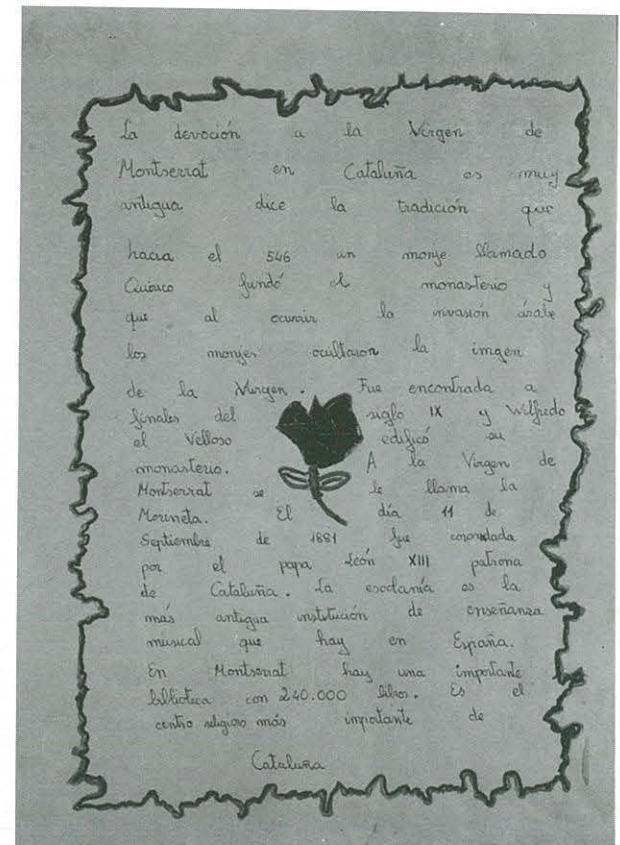 La devoción a la Virgen de
Montserrat en Cataluña es muy
antigua dice la tradición que
hacia el 546 un monje llamado
Quirico fundó el monasterio y
que al ocurrir la invasión árabe
los monjes ocultaron la imgen
de la Virgen. Fue encontrada a
finales del siglo IX y Wilfredo
el Velloso edificó su
monasterio. A la Virgen de
Montserrat se le llama la
Moreneta. El día 11 de
Septiembre de 1881 fue coronada
por el papa León XIII patrona
de Cataluña. La escolanía es la
más antigua institución de enseñanza
musical que hay en España.
En Montserrat hay una importante
biblioteca con 240.000 libros. Es el
centro religioso más importante de
Cataluña